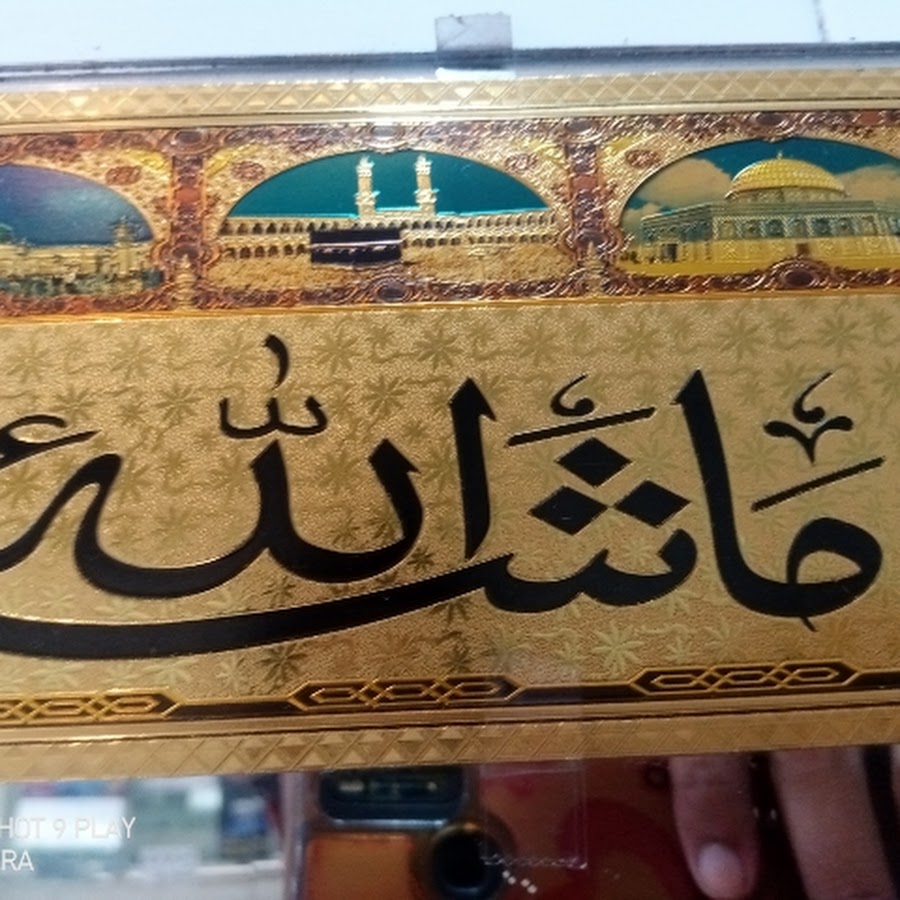 ما شاء الله
HOT 9 PLAY
RA